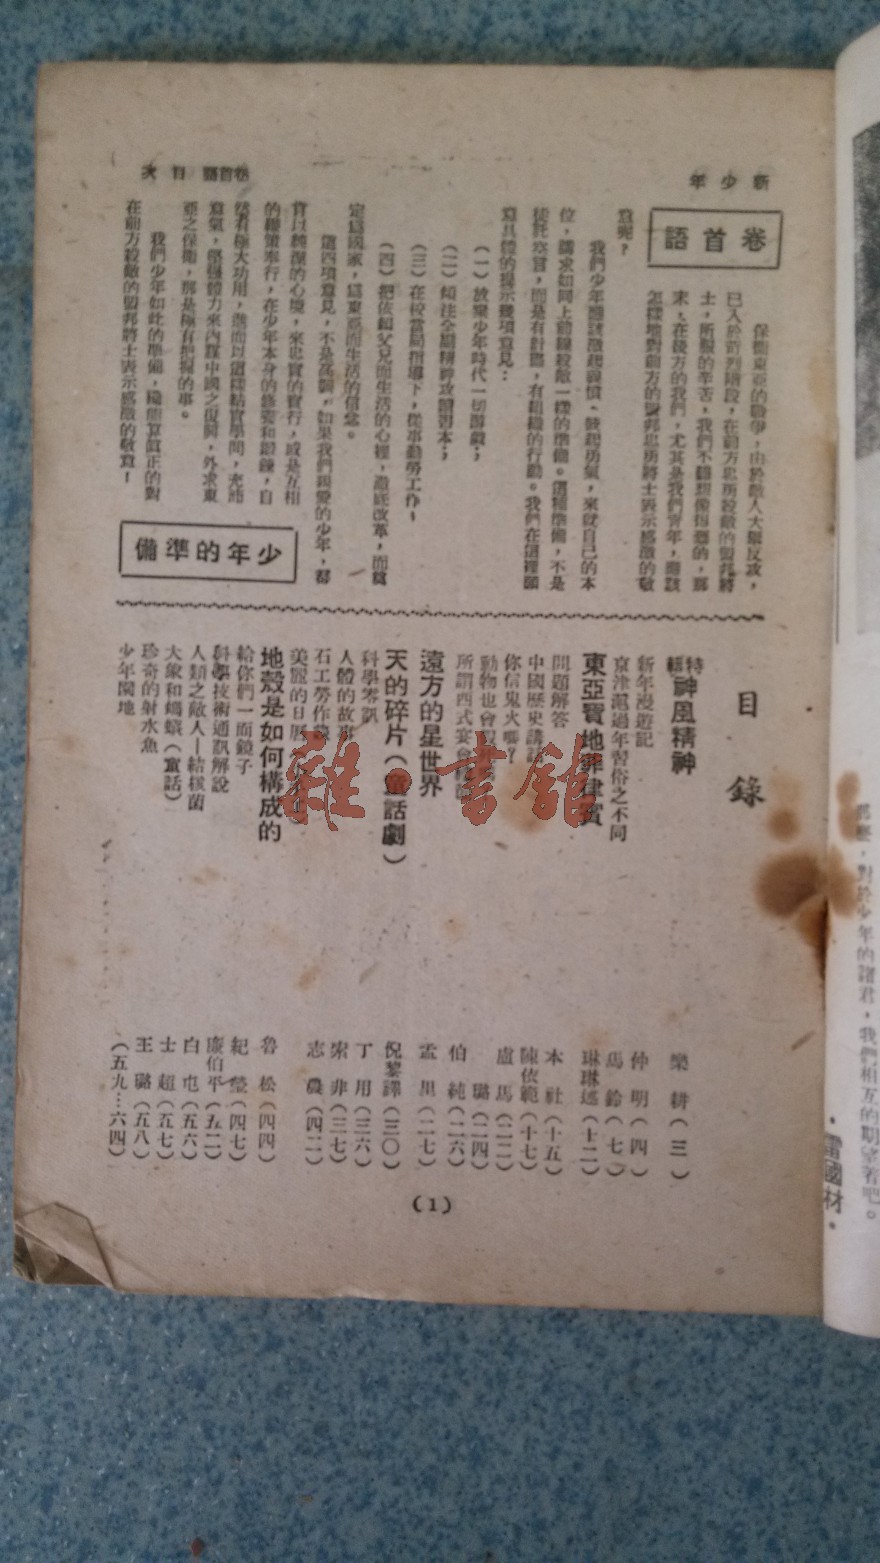 新少年
卷首語 目次
卷首語
保衛東亞的戰爭，由於敵人大舉反攻，
已入於苛烈階段，在前方忠勇殺敵的盟邦將
士，所服的辛苦，我們不難想像得到的，那
末，在後方的我們，尤其是我們青年，應該
怎樣地對前方的盟邦忠勇將士表示感激的敬
意呢？
我們少年應該激起義憤、鼓起勇氣，來就自己的本
位，講求如同上前線殺敵一樣的準備。這種準備，不是
徒託空言，而是有計畫，有組織的行動。我們在這裡願
意具體的揭示幾項意見：
（一）放棄少年時代一切游戲；
（二）傾注全副精神攻讀書本；
（三）在校當局指導下，從事勤勞工作；
（四）把依賴父兄而生活的心裡，澈底改革，而奠
定爲國家，爲東亞而生活的信念。
這四項意見，不是高調，如果我們親愛的少年，都
肯以純潔的心境，來忠實的實行，或是互相
的聯領奉行，在少年本身的修養和鍛鍊，自
然有極大功用，進而以這樣結實學問，充沛
意氣，堅強體力來內謀中國之復興，外求東
亞之保衛，那是極有把握的事。
我們少年如此的準備，纔能算眞正的對
在前方殺敵的盟邦將士表示感激的敬意！
少年的準備
目錄
特輯 神風精神 樂耕（三）
新年漫遊記 仲明（四）
京津滬過年習俗之不同 馬鈴（七）
東亞寶地菲律賓 琳琳遙（十二）
問題解答 本社（十五）
中國歷史講話 陳依範（十七）
你信鬼火嗎？ 盧馬（二二）
動物也會 璐（二四）
所謂西式宴會 伯純（二六）
遠方的星世界 孟里（二七）
天的碎片（童話劇） 倪黎譯（三〇）
科學零訊 丁用（三六）
人體的故事 宋非（三七）
石工勞作 志農（四二）
美麗的日曆
地殼是如何構成的 魯松（四四）
給你們一面鏡子 紀瑩（四七）
科學技術通訊解說 廉伯平（五二）
人類之敵人—結核菌 白屯（五六）
大象和螞蟻（童話） 士超（五七）
珍奇的射水魚 王璐（五八）
少年園地 （五九…六四）
（1）
雜·書館
對於少年的諸君，我們相互的期望着吧。
·雷國材·